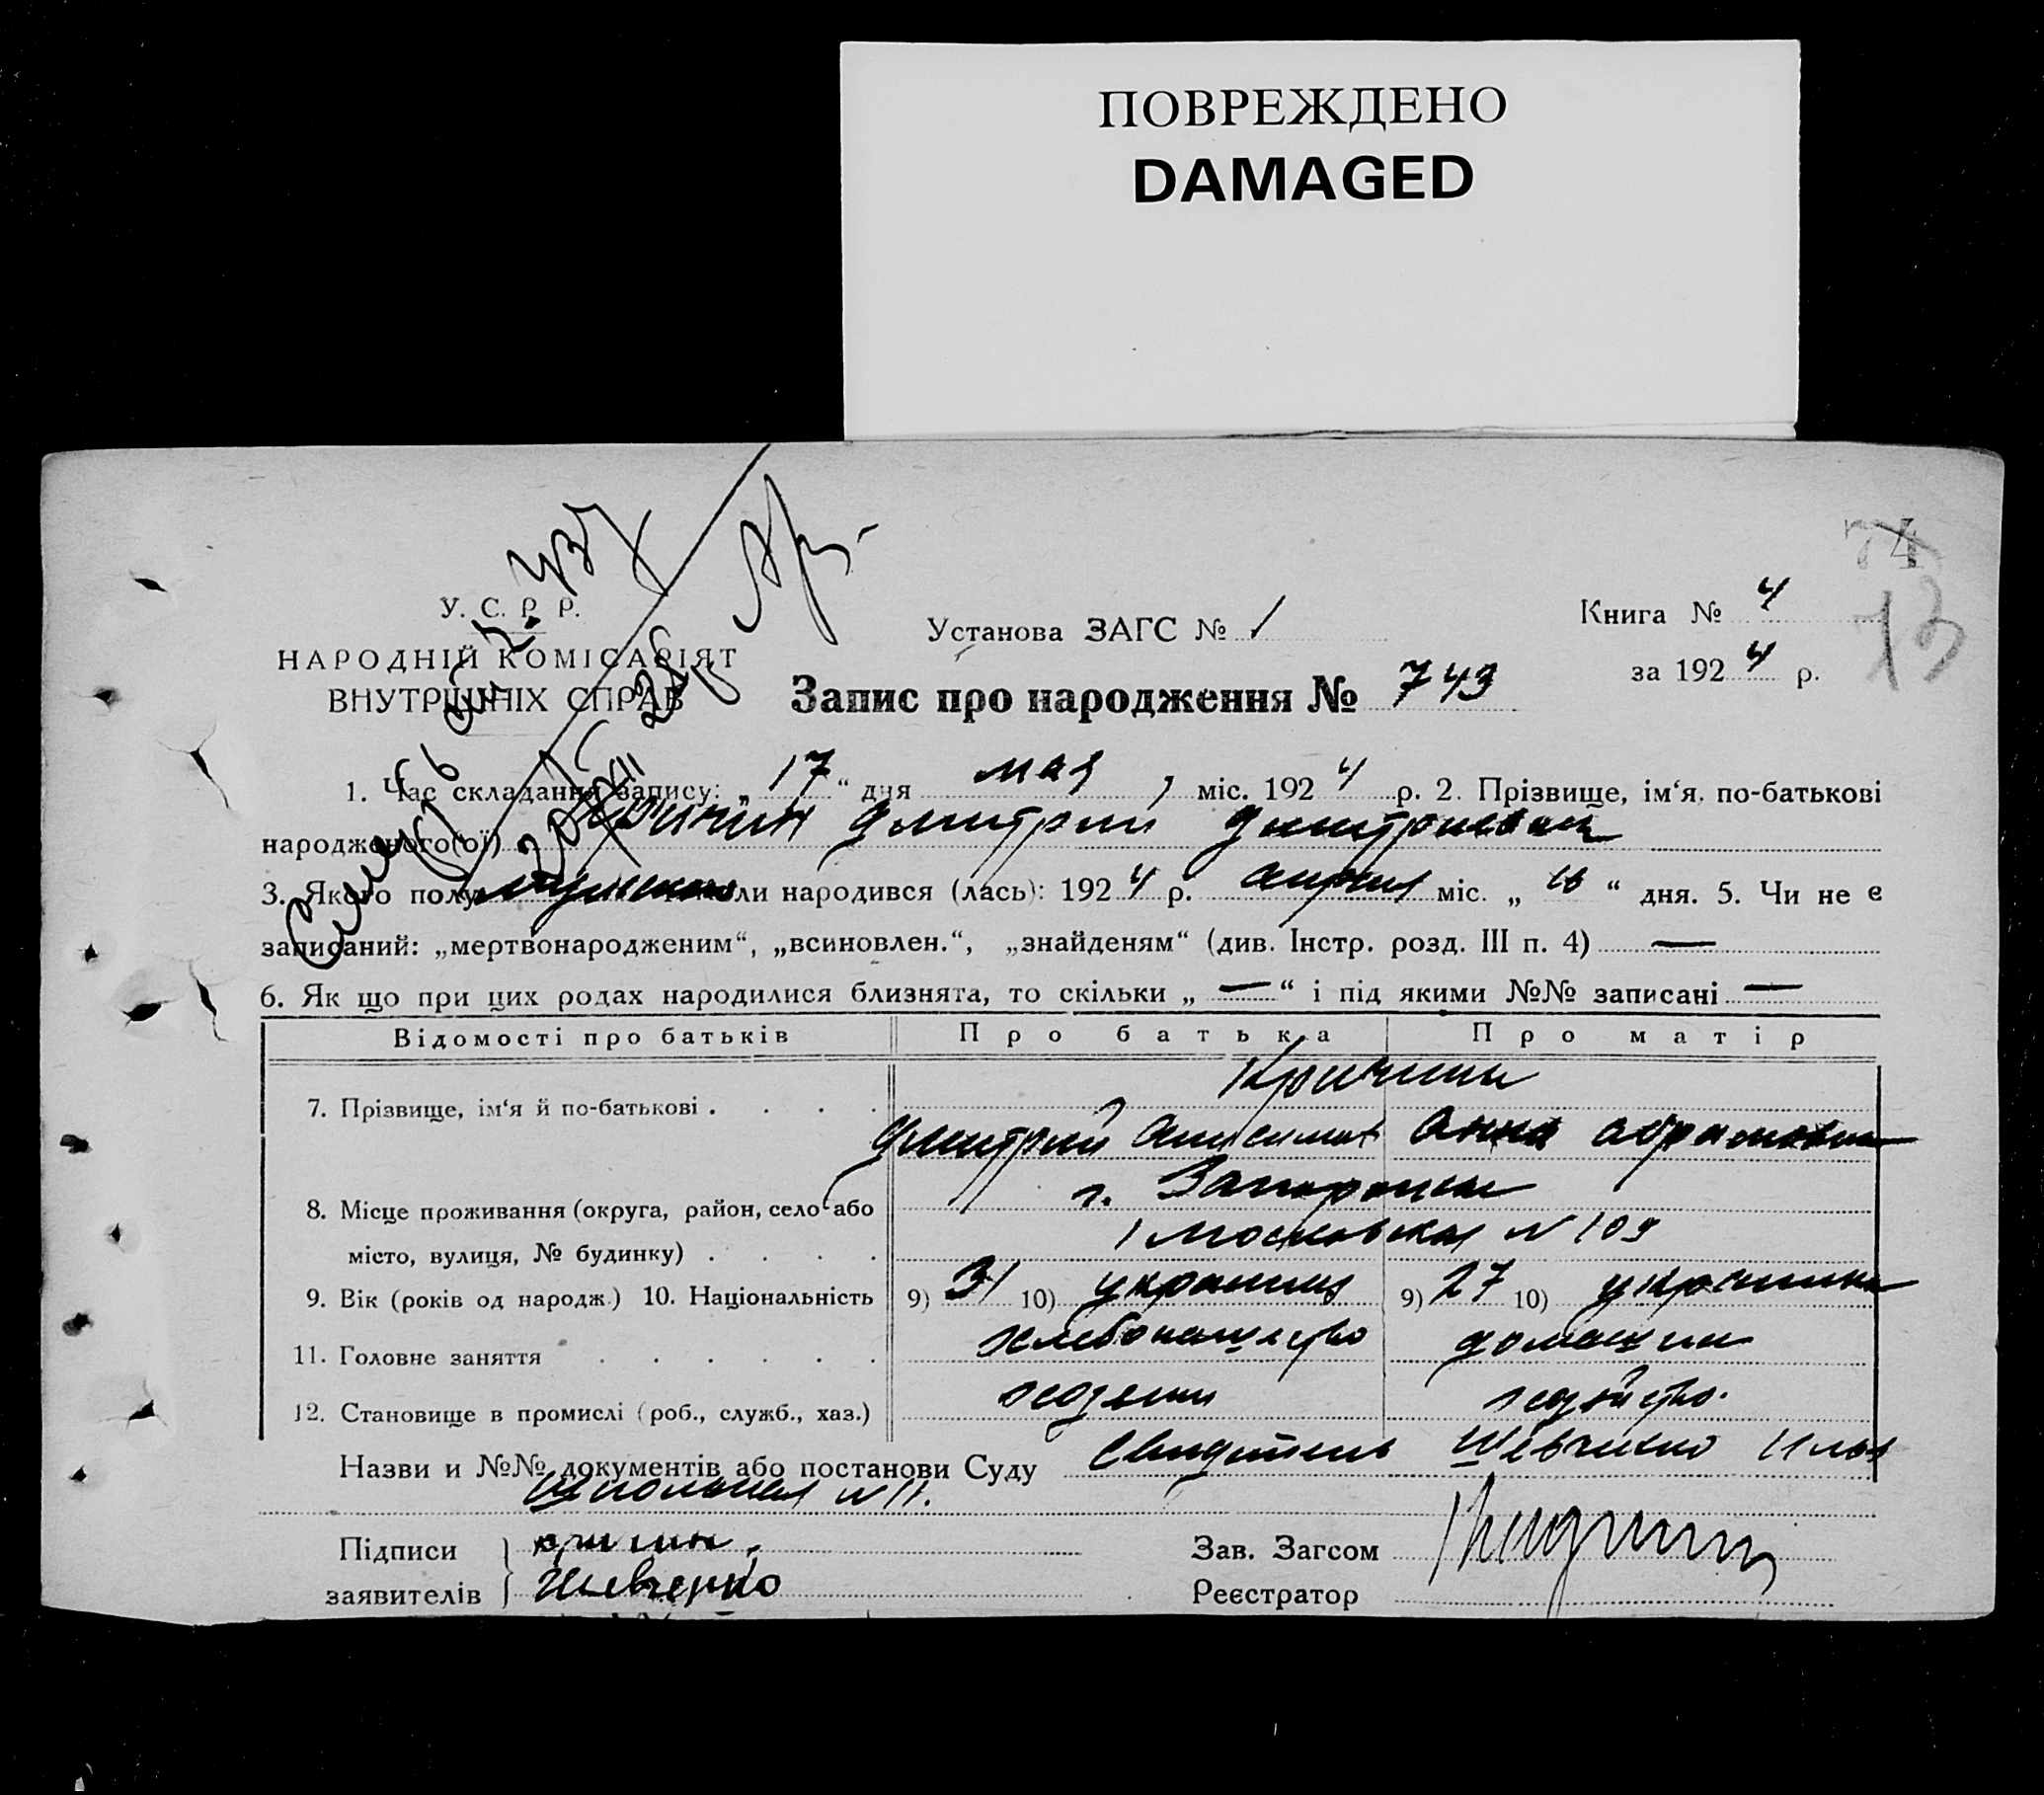 ПОВРЕЖДЕНО
DAMAGED
74
13
У. С. Р. Р.
НАРОДНІЙ КОМІСАРІЯТ
ВНУТРІШНІХ СПРАВ
Установа ЗАГС № 1
Книга № 4
за 1924 р.
Запис про народження № 743
1. Час складання запису: „17“ дня мая міс. 1924 р. 2. Прізвище, ім‘я, по-батькові
народженого(ої) Дмитрий Дмитриевич
3. Якого полу мужского ли народився (лась): 1924 р. апреля міс. „ “ дня. 5. Чи не є
записаний: „мертвонародженим“, „всиновлен.“, „знайденям“ (див. Інстр. розд. III п. 4) —
6. Як що при цих родах народилися близнята, то скільки „—“ і під якими №№ записані —
Відомості про батьків Про батька Про матір
7. Прізвище, ім‘я й по-батькові . . . . Кричины
Дмитрий Анисимов Анна Абрамовна
8. Місце проживання (округа, район, село або г. Запорожье
місто, вулиця, № будинку) . . . . Московская N 109
9. Вік (років од народж.) 10. Національність 9) 31 10) украинец 9) 27 10) украинка
11. Головне заняття . . . . . . хлебопашество домашнее
12. Становище в промислі (роб., служб., хаз.) хозяин хозяйство.
Назви и №№ документів або постанови Суду Свидетель Шевченко Илья
N 11.
Підписи
заявителів Шевченко
Зав. Загсом
Реєстратор